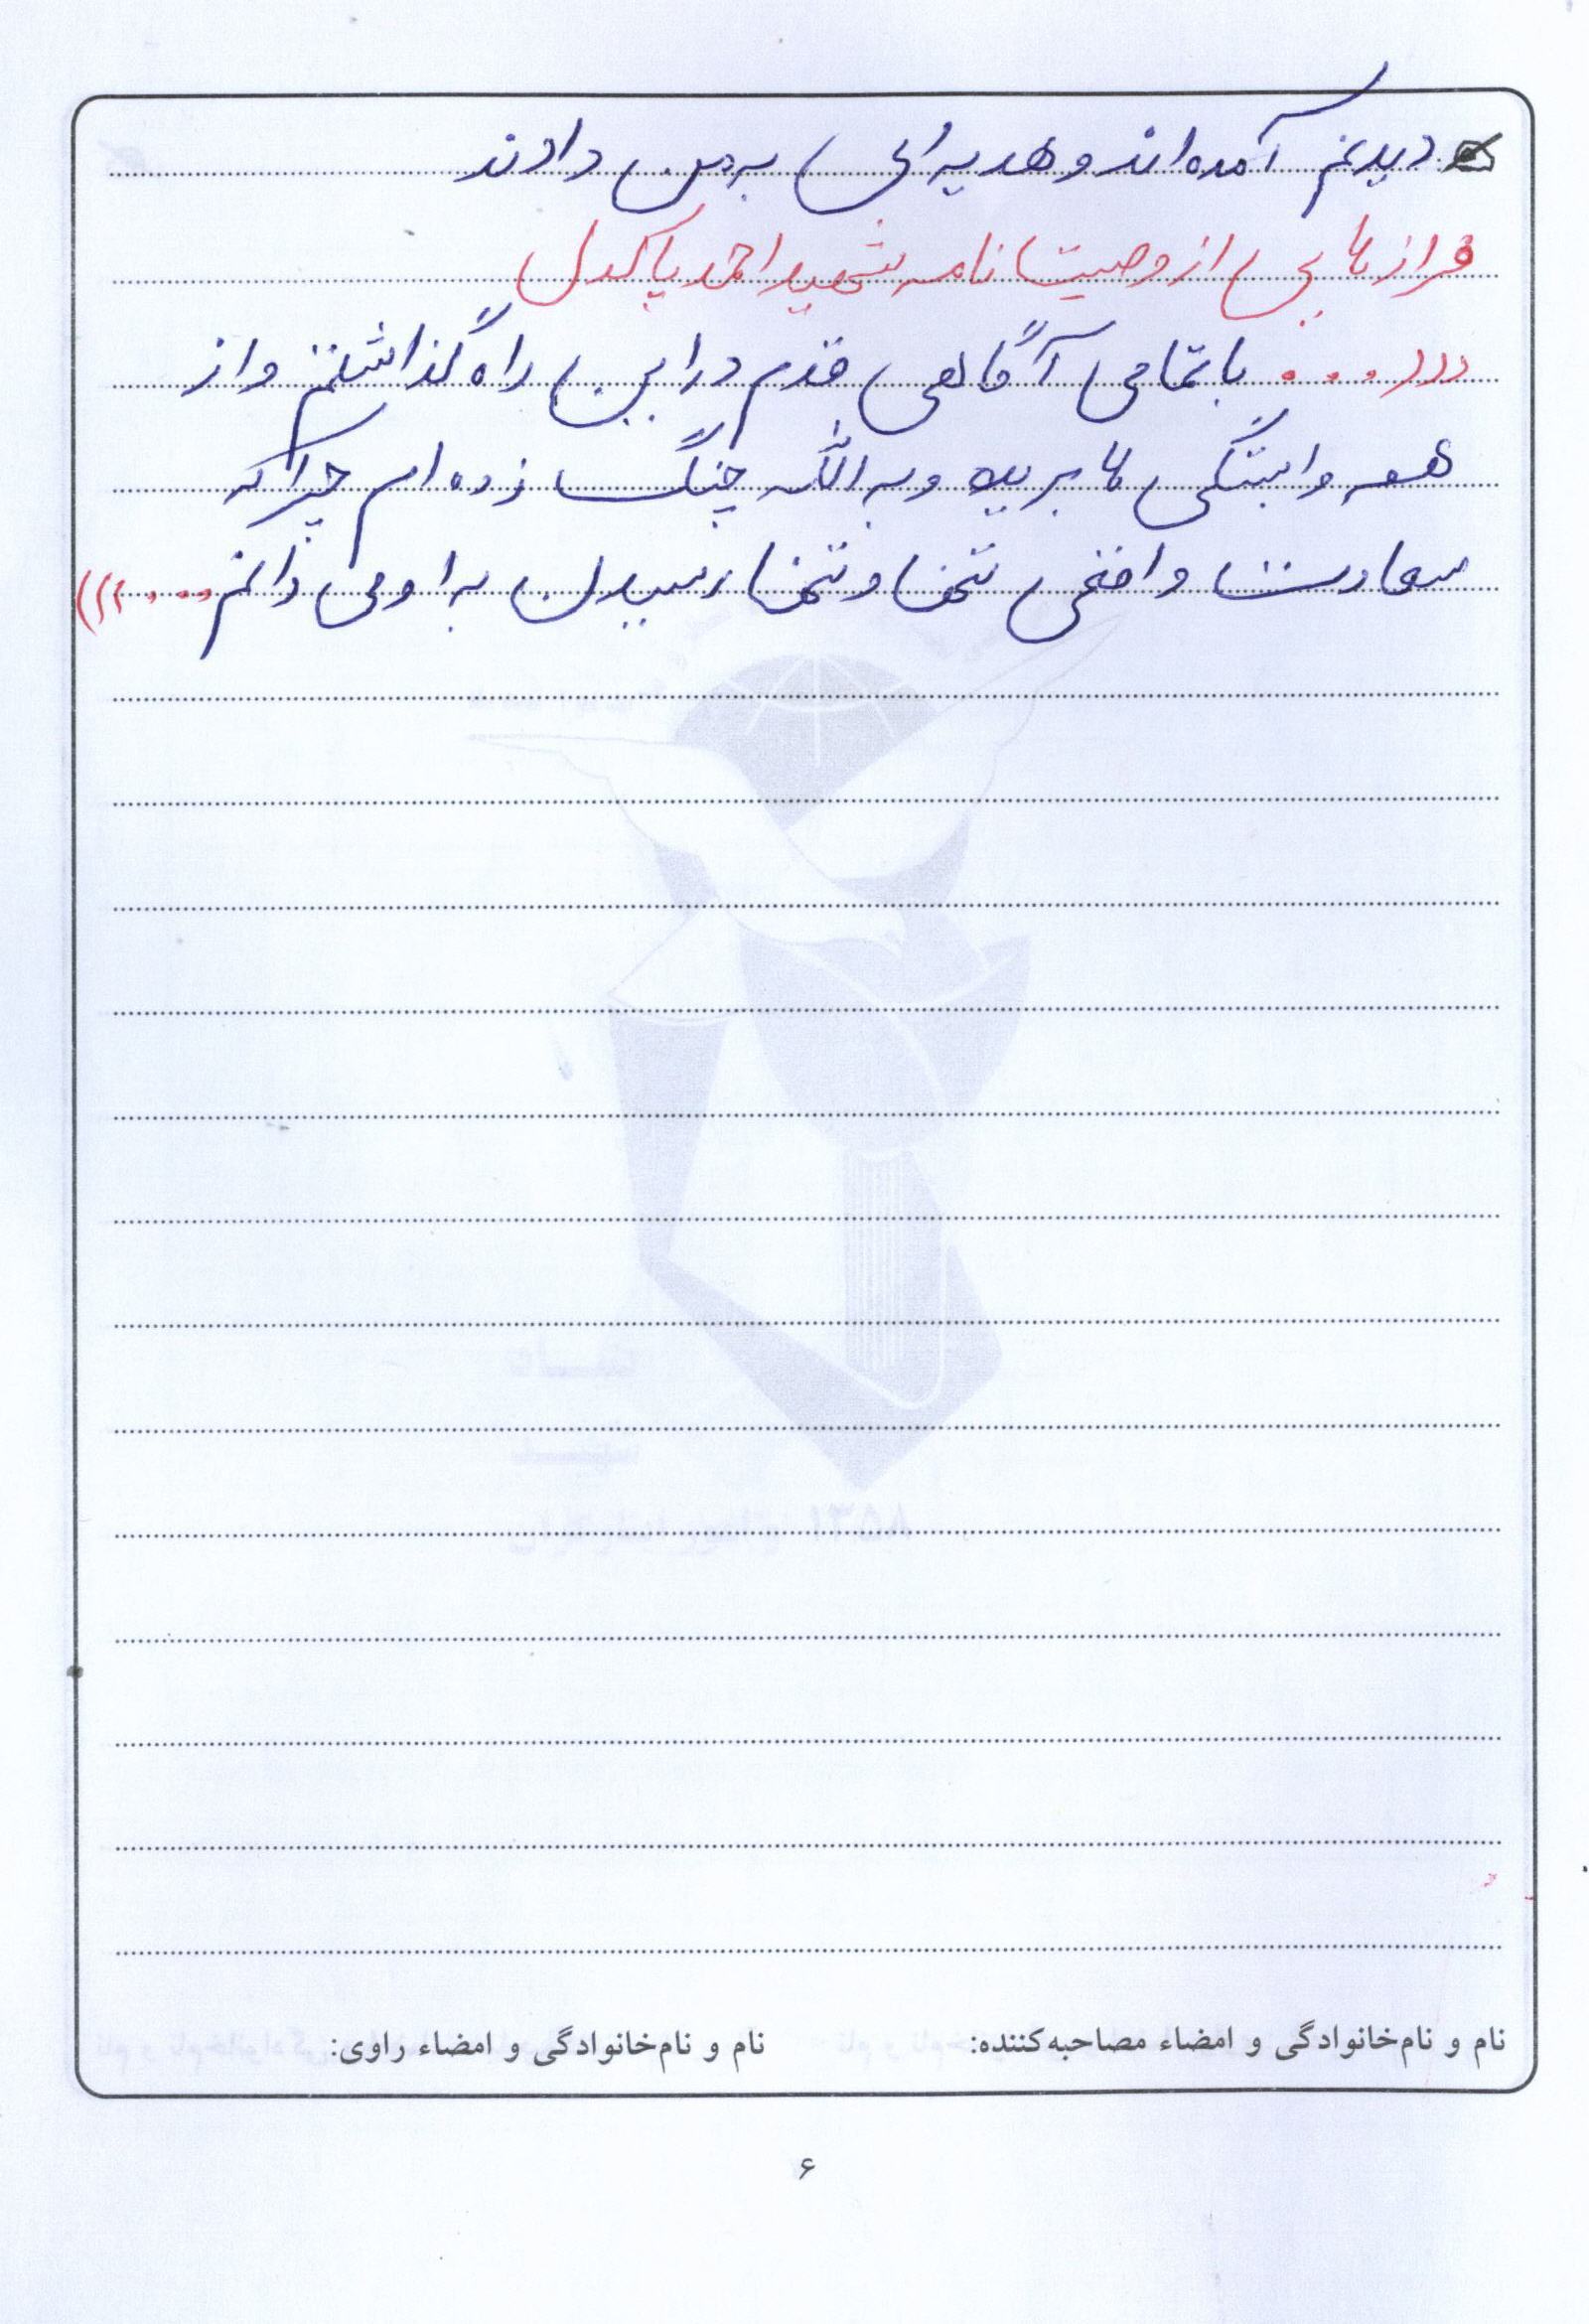 دیدنم آمده‌اند و هدیه‌ای به من دادند
فرازهایی از وصیت نامه شهید احمد پاکدل
(((.... با تمامی آگاهی قدم در این راه گذاشتم و از
همه وابستگی ها بریده و به الله چنگ زده ام چرا که
سعادت واقعی تنها و تنها رسیدن به او می دانم....)))
نام و نام‌خانوادگی و امضاء مصاحبه‌کننده: نام و نام‌خانوادگی و امضاء راوی:
۶